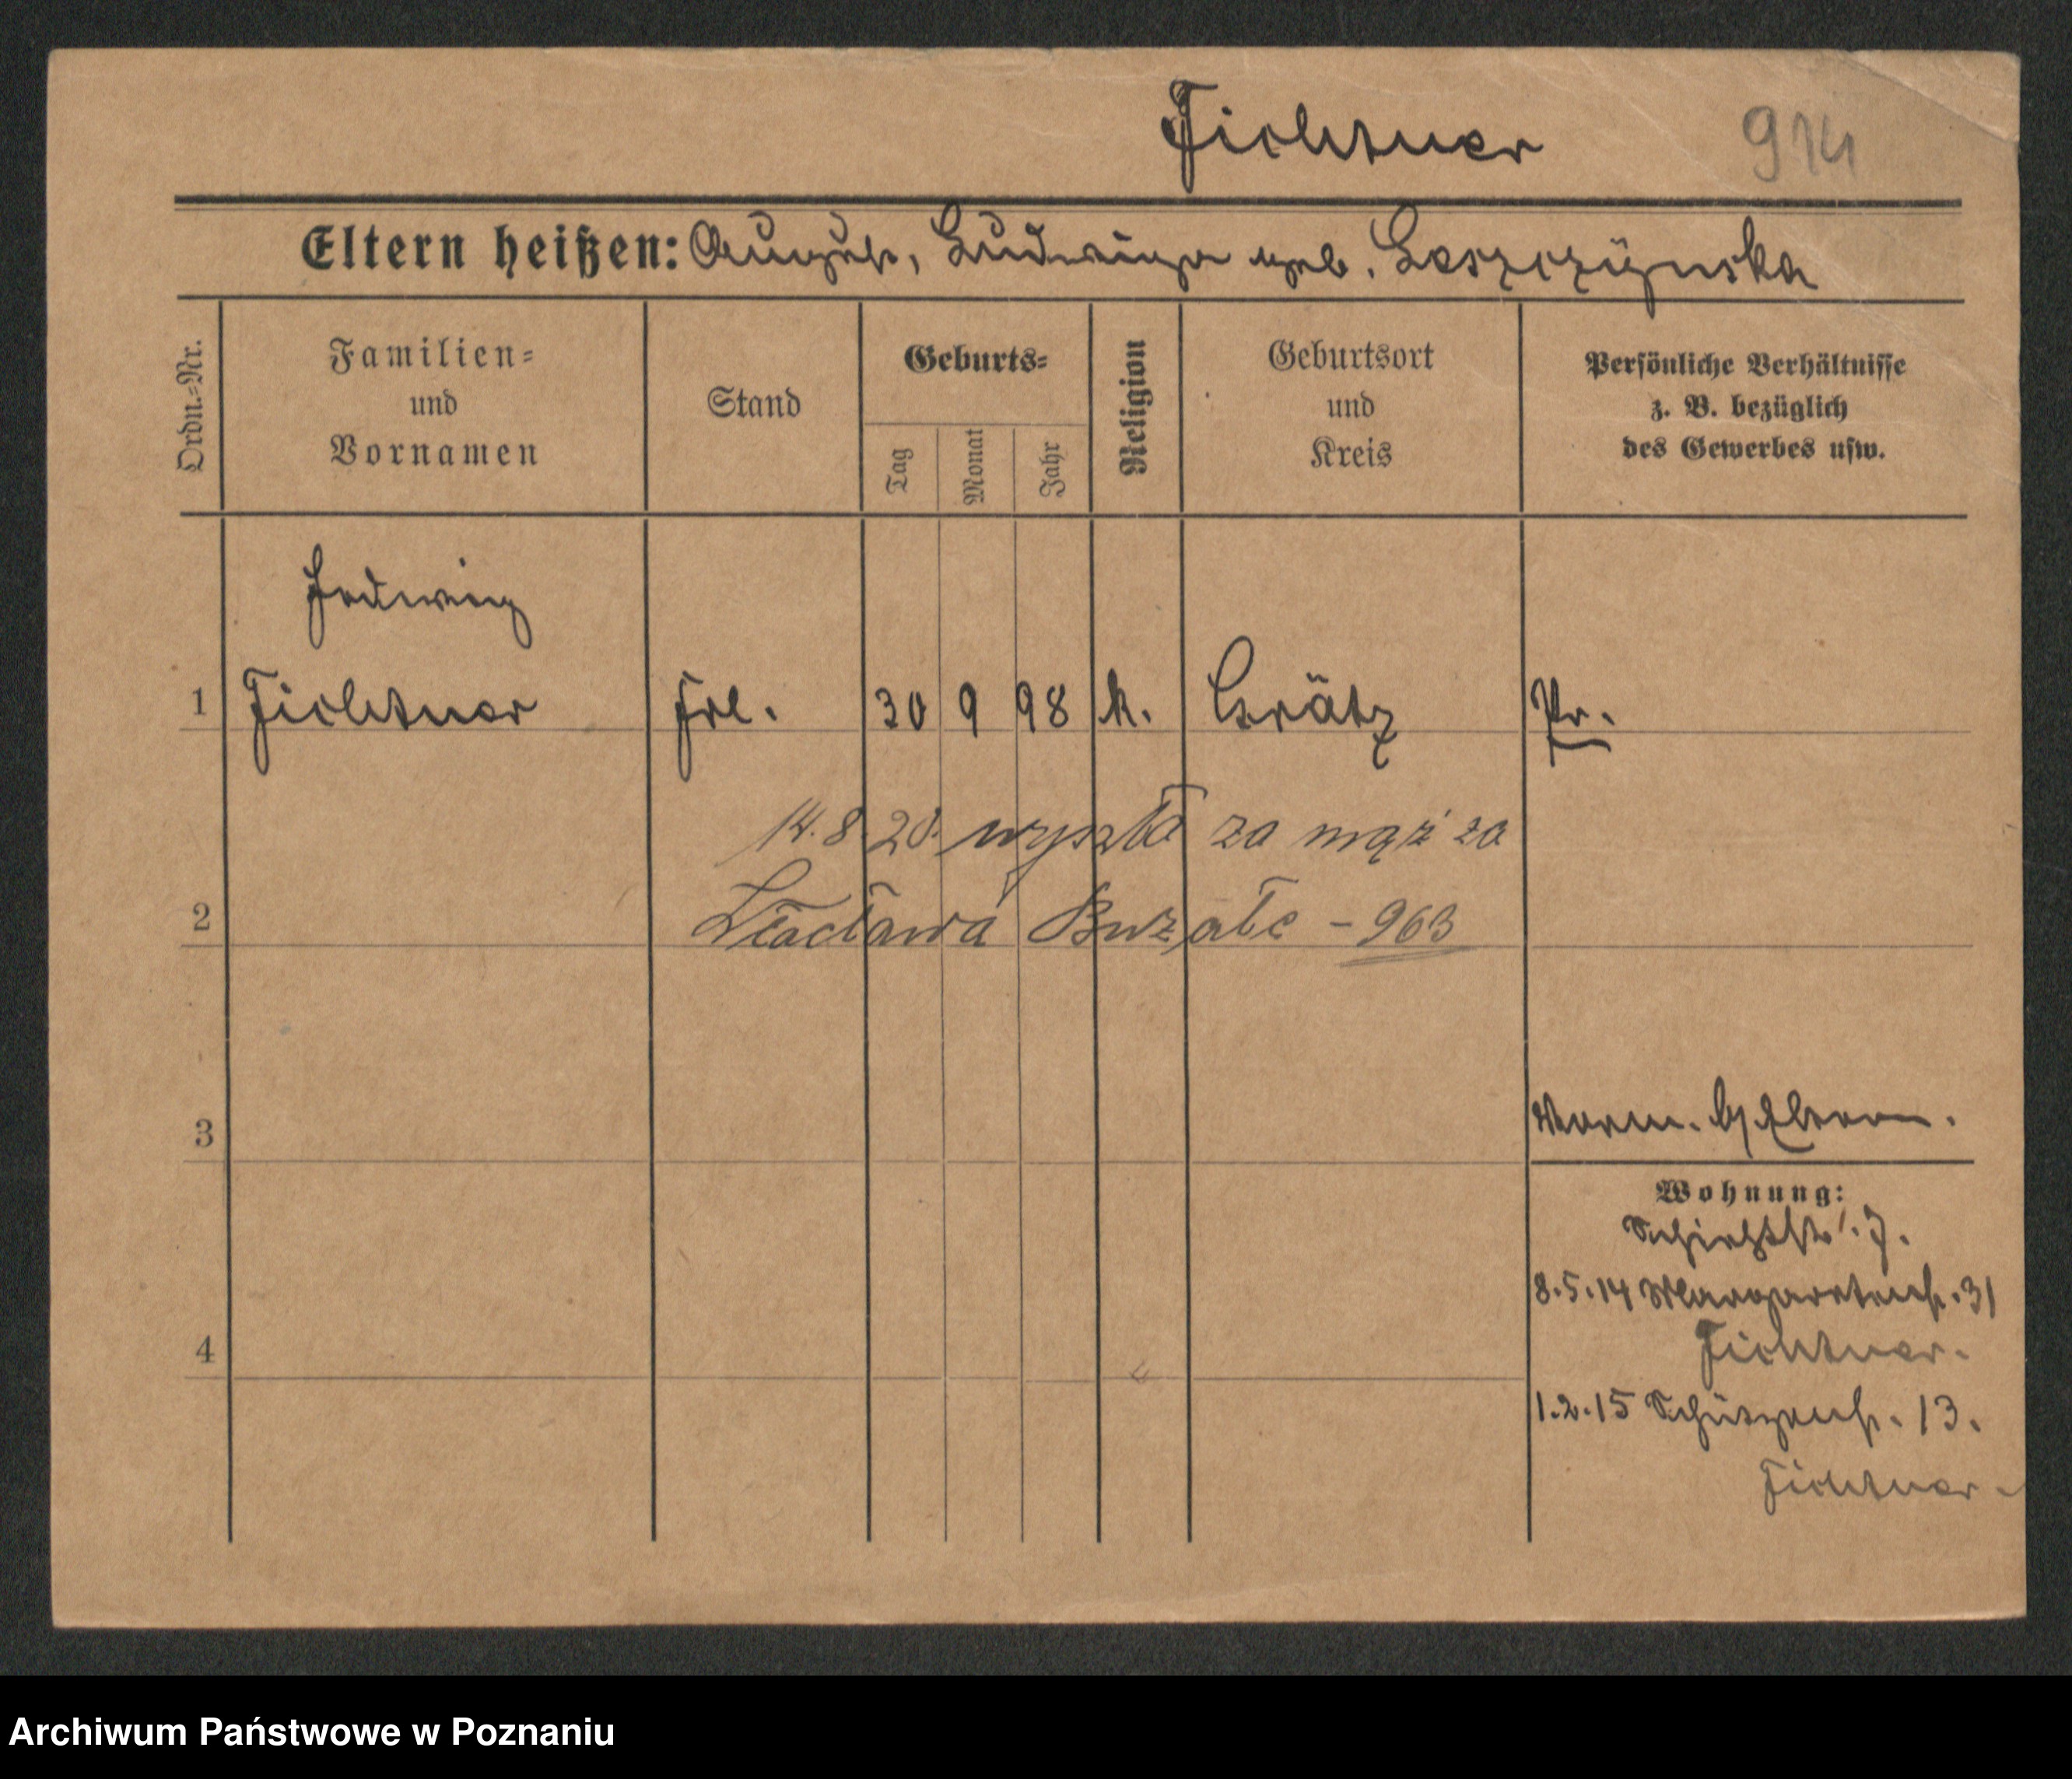 Fichtner 914
Eltern heißen: August, Ludwiga geb. Leszczyńska
Ordn.=Nr.
Familien=
und
Vornamen
Stand
Geburts=
Tag
Monat
Jahr
Religion
Geburtsort
und
Kreis
Persönliche Verhältnisse
z. B. bezüglich
des Gewerbes usw.
Hedwig
1 Fichtner Frl. 30 9 98 k. Grätz Pr.
14.8.20. wyszła za mąż za
2 963
3
Wohnung:
7.
8.5.14 Margaretenstr. 31
4 Fichtner.
1.2.15 Schützenstr. 13.
Fichtner.
Archiwum Państwowe w Poznaniu